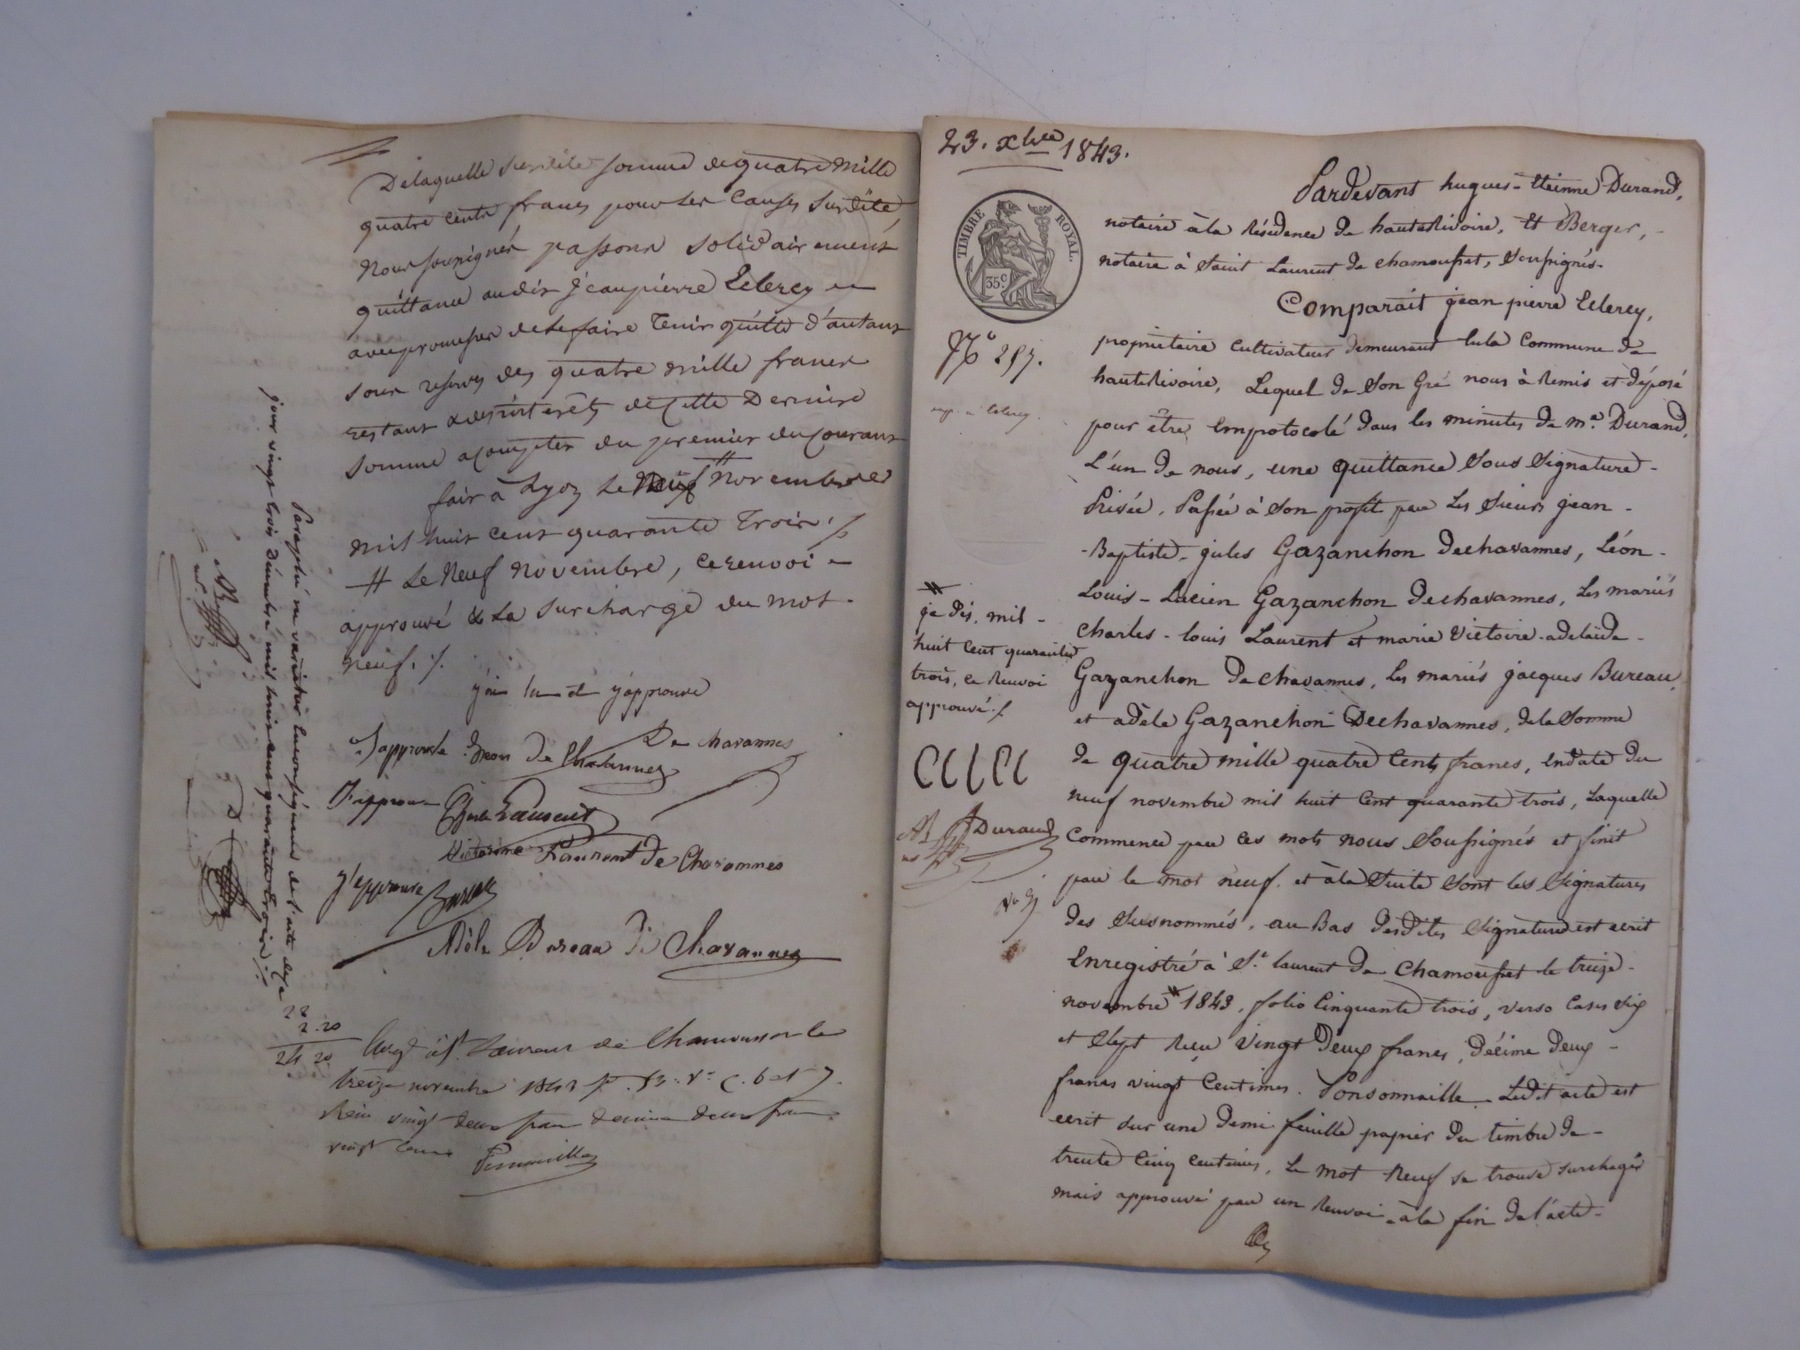 Delaquelle susdite somme de quatre mille
quatre cents francs pour les causes susdite,
Nous soussignés passons solidairement
quittance audit Jean pierre Leclercq
avec promesse de le faire tenir quitte d'autant
sous reserves des quatre mille francs
restant & des intérêts de cette Derniere
somme a compter du premier du courant
fait à Lyon le Neuf # Novembre
mil huit cent quarante trois ./.
# Le Neuf Novembre, ce renvoi
approuvé & la surcharge du mot
neuf. /.
j'ai lu et j'approuve
De Chavannes
J'approuve Léon De Chavannes
J'approuve Charles Laurent
Victorine Laurent de Chavannes
J'approuve Bureau
Adèle Bureau De Chavannes
22
2.20
24 20
Enregt à St. Laurent de Chamousset le
treize novembre 1843 f°. 53. v° c. 6 et 7.
Reçu vingt deux francs decime deux francs
vingt cent
Ponsonnaille
Paraphé ne varietur les soussignés de l'acte de ce
jour vingt trois décembre mil huit cent quarante trois ./.
23. xbre 1843.
TIMBRE ROYAL.
35c
No 257.
Pardevant hugues-Etienne Durand,
notaire à la Résidence de hauteRivoire, Et Berger,
notaire à Saint Laurent de chamousset, Soussignés.
Comparait jean pierre Leclercq,
propriétaire cultivateur demeurant en la Commune de
hauteRivoire, Lequel de Son Gré nous à Remis et déposé
pour être Emprotocolé dans les minutes de me. Durand,
L'un de nous, une quittance Sous Signature
Privée, Passée à Son profit par Les Sieurs jean-
-Baptiste-jules Gazanchon Dechavannes, Léon-
Louis-Lucien Gazanchon Dechavannes, Les mariés
Charles-louis Laurent et marie Victoire-adelaide
Gazanchon Dechavannes, Les mariés jacques Bureau,
et adèle Gazanchon Dechavannes, de la Somme
de quatre mille quatre Cents francs, En date du
neuf novembre mil huit Cent quarante trois, Laquelle
Commence par ces mots nous Soussignés et finit
par le mot neuf. et à la Suite Sont les Signatures
des Susnommés. au Bas desdites Signatures est ecrit
Enregistré à St. laurent De Chamousset le treize
novembre # 1843, folio Cinquante trois, verso Cases Six
et Sept Reçu Vingt Deux francs, Décime Deux
francs vingt Centimes. Ponsonnaille. Ledit acte est
ecrit sur une Demi feuille papier Du timbre de
trente Cinq Centimes, Le mot Neuf se trouve Surchagé
mais approuvé par un Renvoi à la fin de l'acte.
#
je dis, mil
huit Cent quarante
trois, ce Renvoi
approuvé ./.
Durand